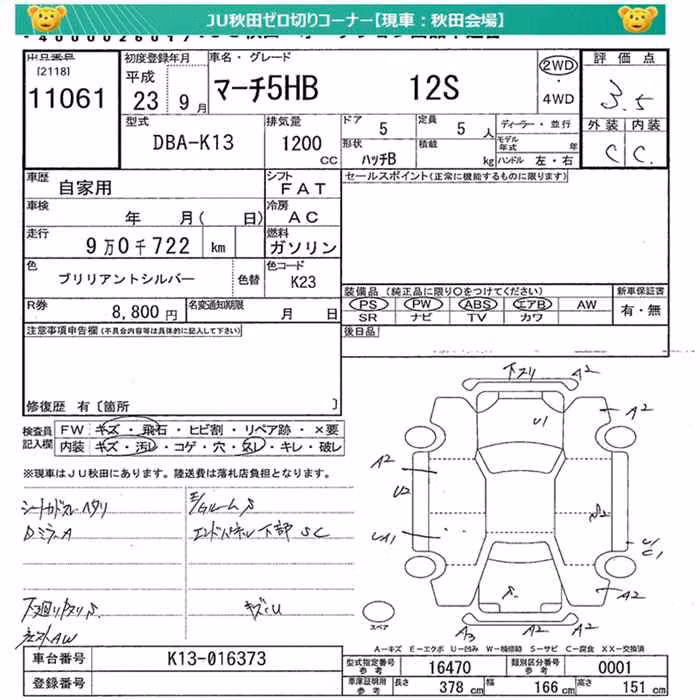 JU秋田ゼロ切りコーナー【現車：秋田会場】
出品番号 初度登録年月 車名・グレード 評価点
[2118]
11061
平成 23 9月
マーチ5HB 12S
2WD ・ 4WD
3.5
型式 DBA-K13
排気量 1200 cc
ドア 5 定員 5人
ディーラー・並行
外装 内装
C C
形状 ハッチB 積載 kg
モデル年式 年
ハンドル 左・右
車歴 自家用
シフト FAT
セールスポイント(正常に機能するものに限ります)
車検 年 月( 日)
冷房 AC
走行 9万0千722 km
燃料 ガソリン
色 ブリリアントシルバー 色替
色コード K23
装備品 (純正品に限り○をつけてください) 新車保証書
PS PW ABS エアB AW 有・無
SR ナビ TV カワ
R券 8,800円 名変通知期限 月 日
後日品
注意事項申告欄 (不具合内容等は具体的に記入して下さい)
修復歴 有〔箇所 〕
検査員記入欄
FW キズ・飛石・ヒビ割・リペア跡・×要
内装 キズ・汚レ・コゲ・穴・スレ・キレ・破レ
※現車はJU秋田にあります。陸送費は落札店負担となります。
Dミラー A
エンドパネル下部 SC
キズ・U
下スリ A2
U1
A2
A2
U2
A2
UA1
U1
C1
S
A2
A3 A2 A2
スペア
A－キズ E－エクボ U－凹み W－補修跡 S－サビ C－腐食 XX－交換済
車台番号 K13-016373
型式指定番号 参考 16470 類別区分番号 参考 0001
登録番号
車庫証明用 参考 長さ 378 cm 幅 166 cm 高さ 151 cm